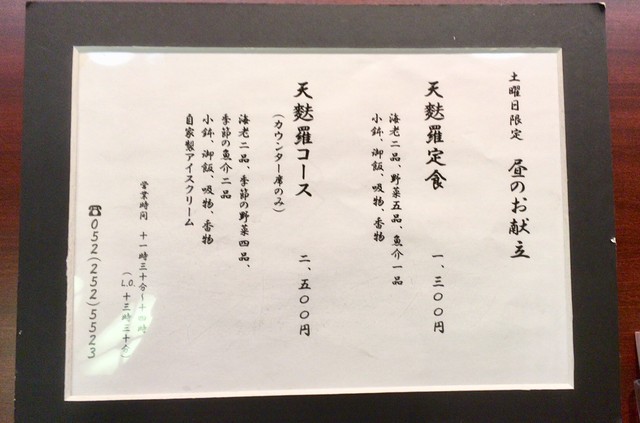 土曜日限定 昼のお献立
天麩羅定食 一、三〇〇円
海老二品、野菜五品、魚介一品
小鉢、御飯、吸物、香物
天麩羅コース 二、五〇〇円
(カウンター席のみ)
海老二品、季節の野菜四品、
季節の魚介二品
小鉢、御飯、吸物、香物
自家製アイスクリーム
営業時間 十一時三十分〜十四時
(L.O. 十三時三十分)
☎052(252)5523